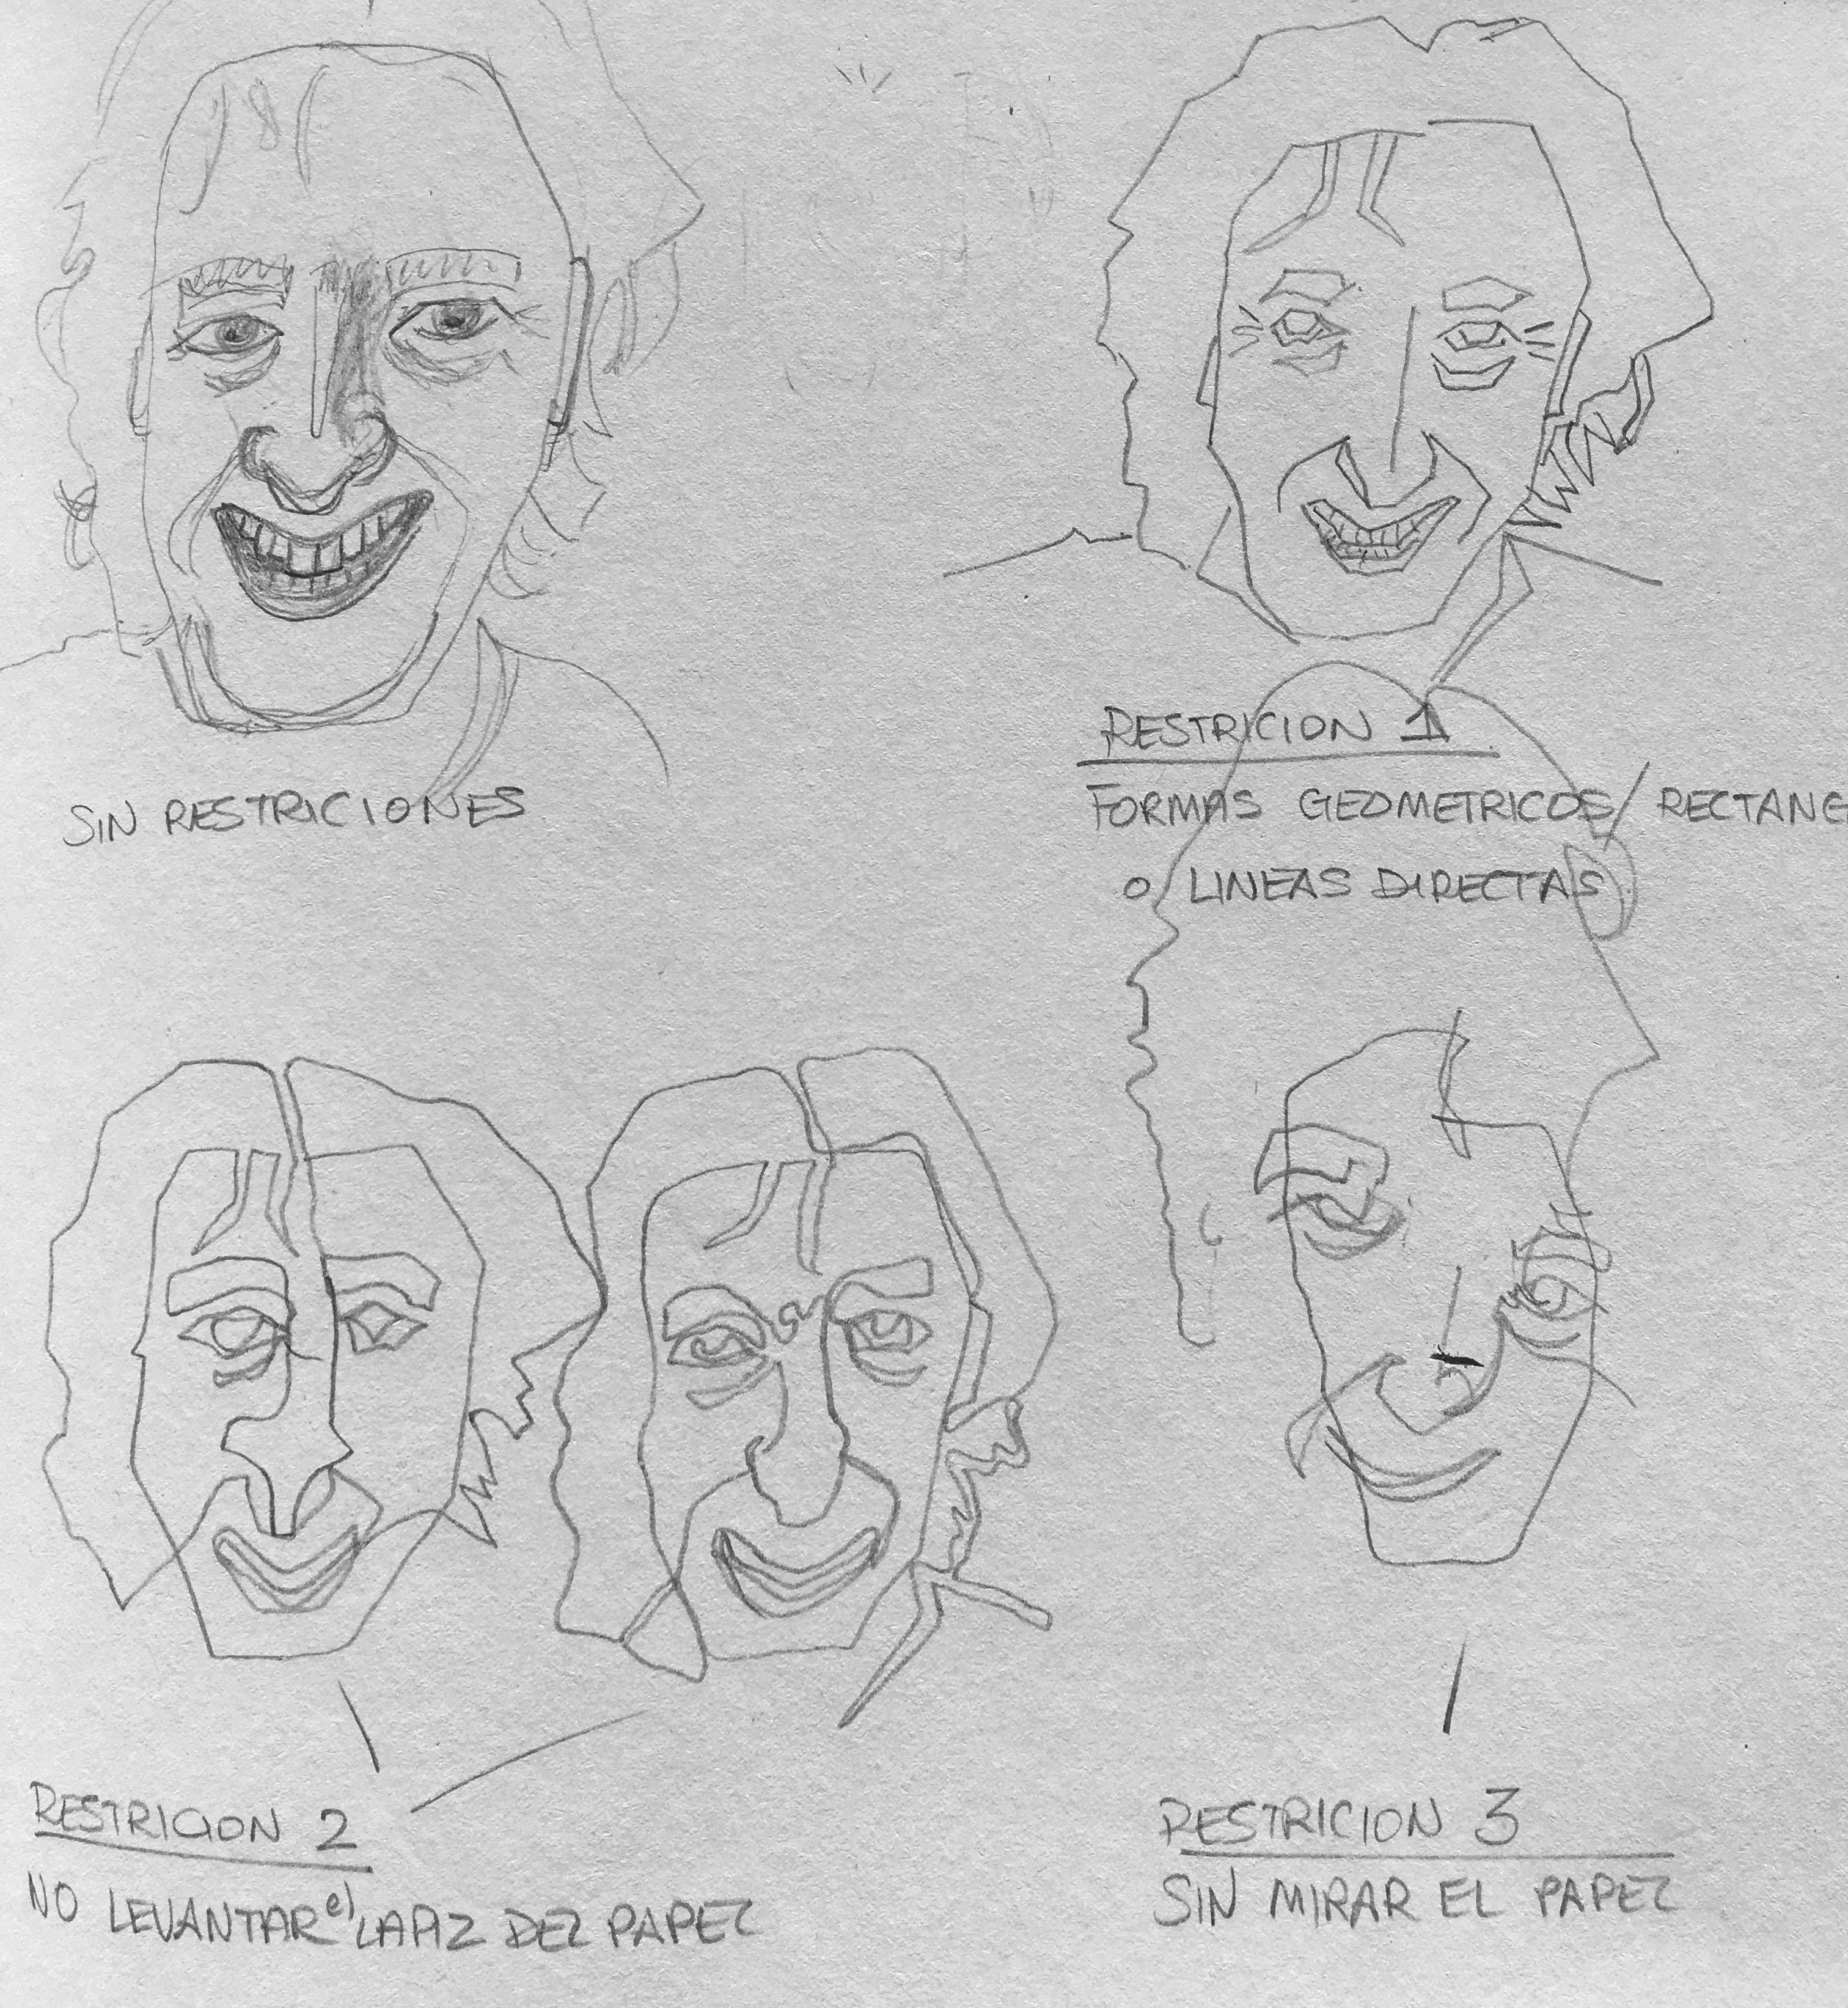 SIN RESTRICIONES
RESTRICION 1
FORMAS GEOMETRICOS/ RECTANG
o/ LINEAS DIRECTAS
RESTRICION 2
NO LEVANTAR el LAPIZ DEL PAPEL
RESTRICION 3
SIN MIRAR EL PAPEL